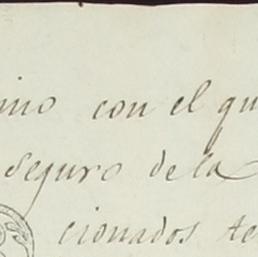 con el qu
seguro de la
cionados te